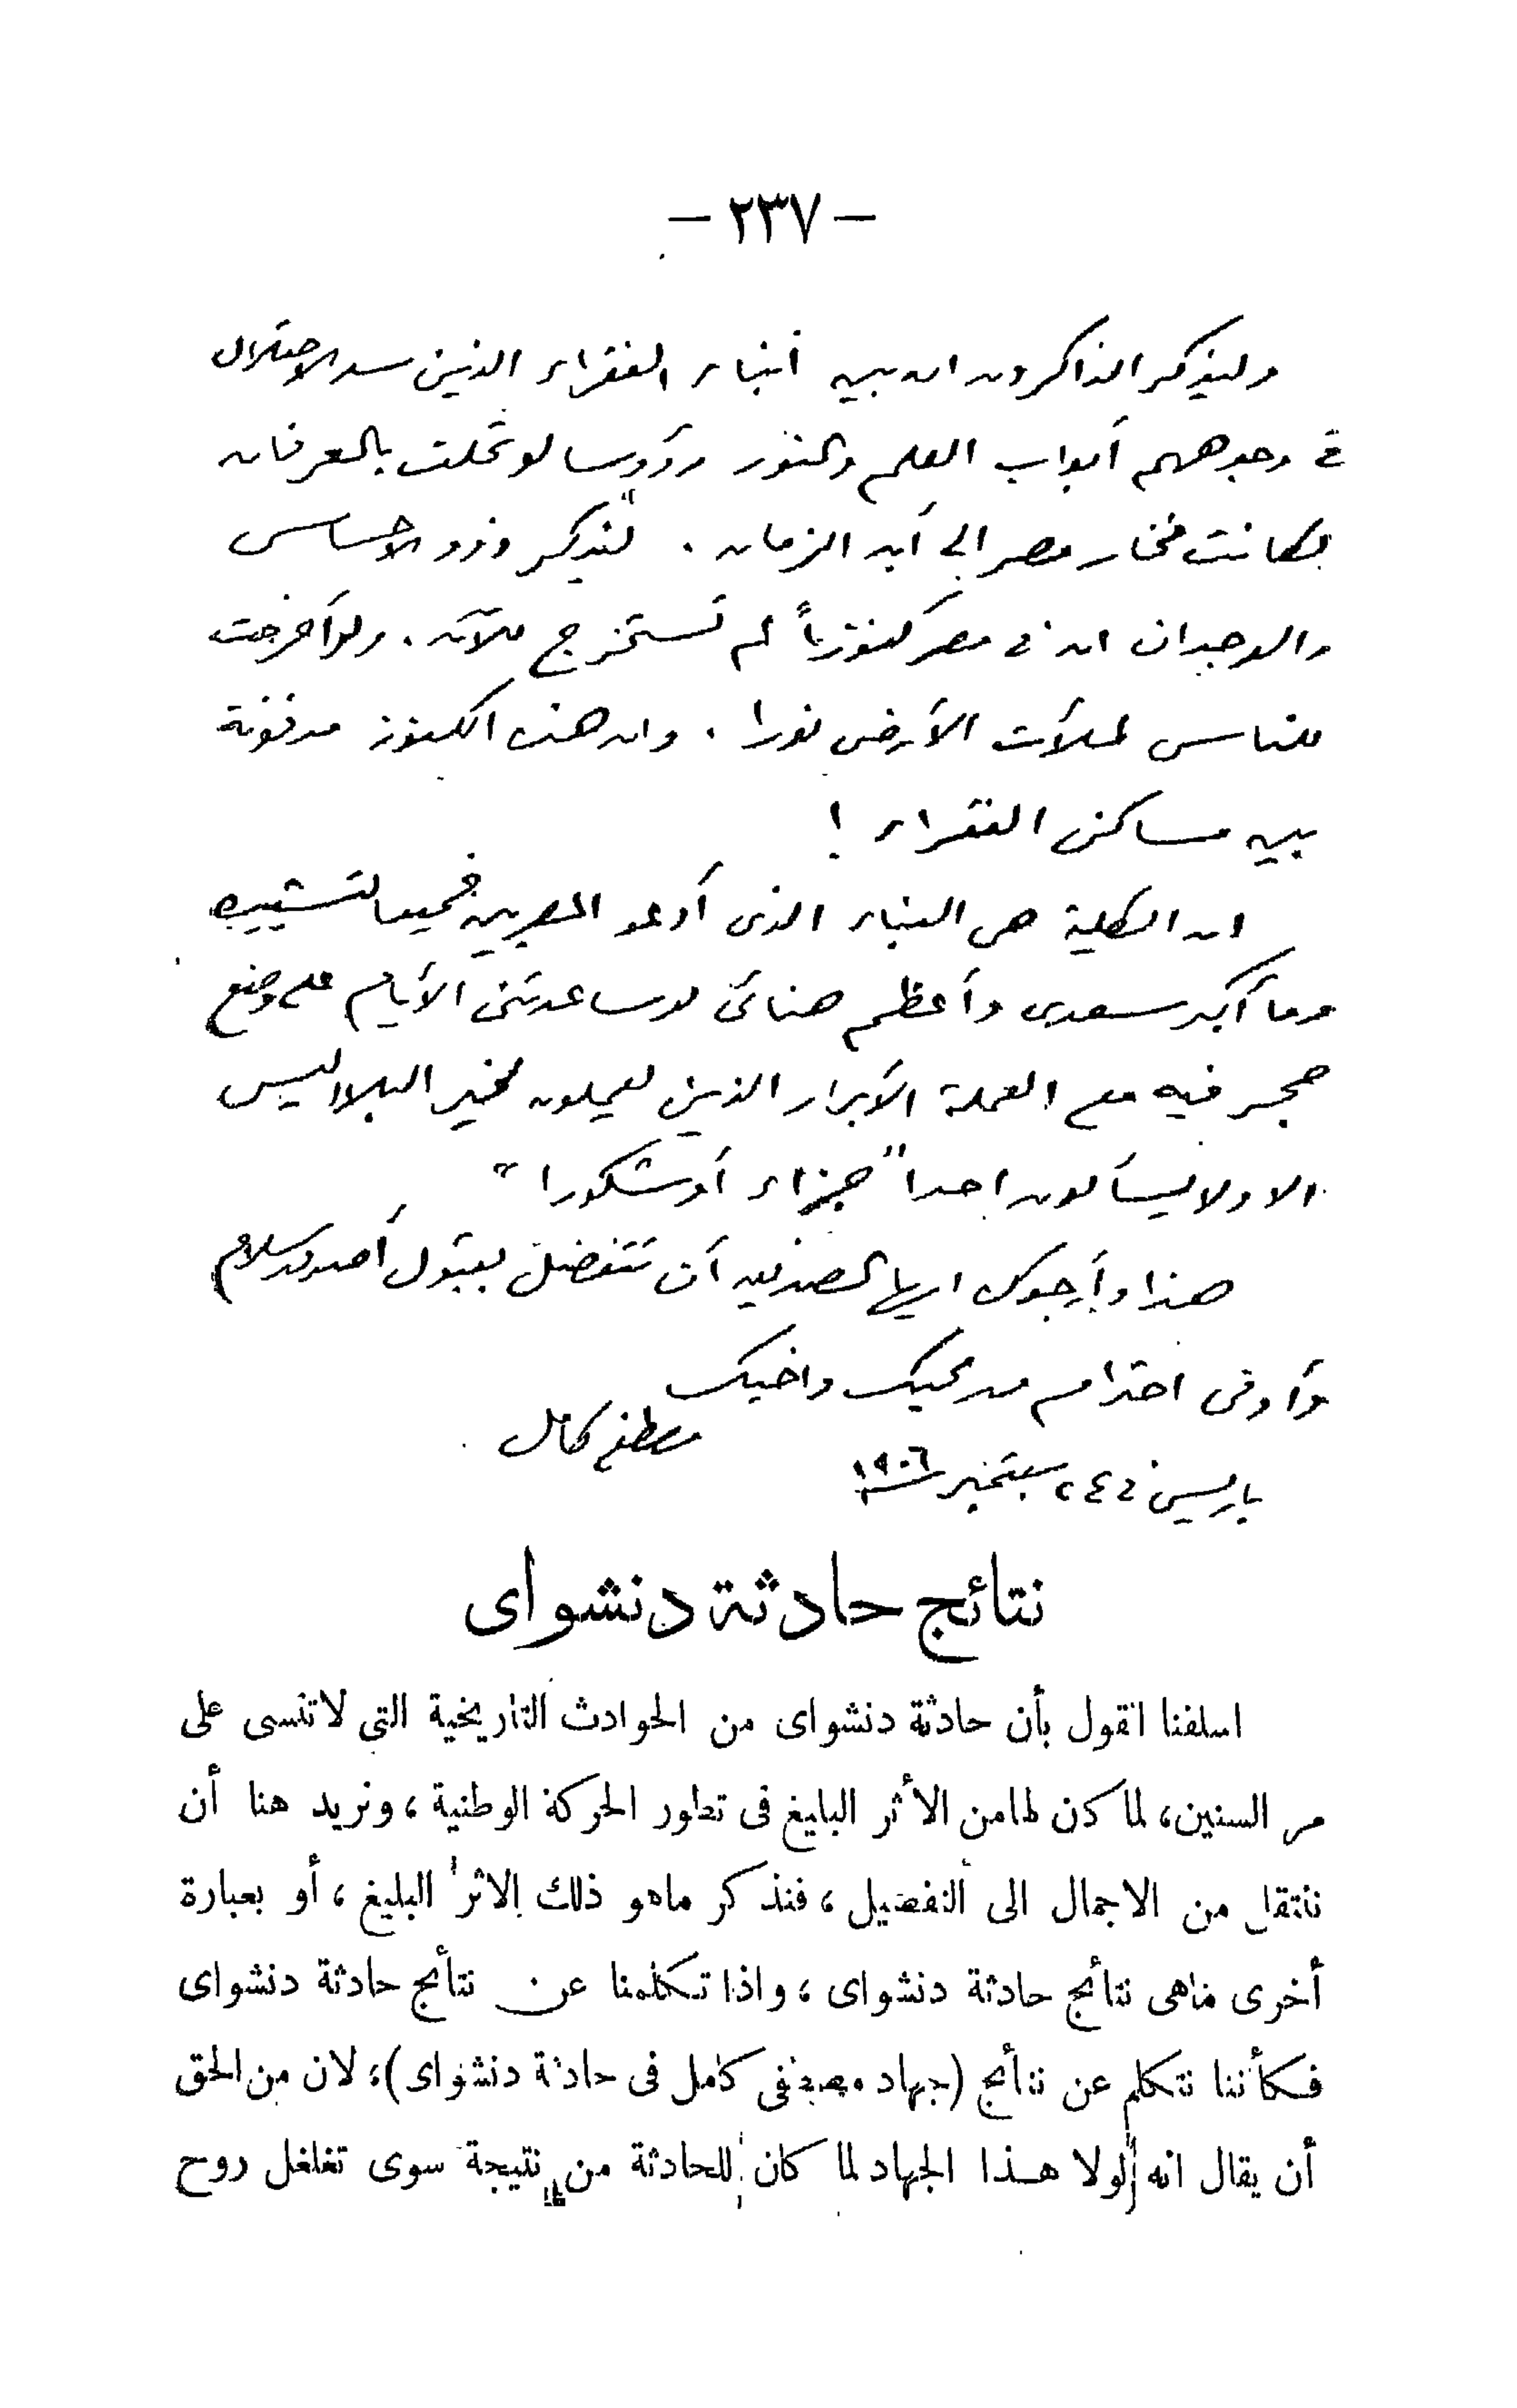 — ٢٣٧ —
وليذكر الذاكرون ان بين أبناء الفقراء الذين سد الاحتلال
فى وجوههم أبواب العلم والنور رؤوسا لو تحلت بالعرفان
لكانت فخار مصر إلى أبد الزمان . ليذكر ذوو الاحساس
والوجدان ان فى مصر كنوزاً لم تستخرج للآن . ولو أخرجت
للناس لملأت الأرض نورا . وان هذه الكنوز مدفونة
بين مساكن الفقراء !
ان الكلية هى البناء الذى أدعو المصريين جميعا لتشييده
وما أكبر سعدى وأعظم هنائى لو ساعدتنى الأيام على وضع
حجر فيه مع العملة الأبرار الذين يعملون لخير البلاد ليس
الا ولا يسألون احدا "جزاء أو شكورا"
هذا وأرجوك ايها الصديق أن تتفضل بقبول أصدق سلام
وأوفى احترام من محبك واخيك
مصطفى كامل
باريس فى ٢٤ سبتمبر ١٩٠٦
نتائج حادثة دنشواى
اسلفنا القول بأن حادثة دنشواى من الحوادث التاريخية التى لاتنسى على
مر السنين، لما كان لها من الأثر البليغ فى تطور الحركة الوطنية ، ونريد هنا أن
ننتقل من الاجمال الى التفصيل ، فنذكر ماهو ذلك الاثر البليغ ، أو بعبارة
أخرى ماهى نتائج حادثة دنشواى ، واذا تكلمنا عن نتائج حادثة دنشواى
فكأننا نتكلم عن نتائج (جهاد مصطفى كامل فى حادثة دنشواى)، لان من الحق
أن يقال انه لولا هذا الجهاد لما كان للحادثة من نتيجة سوى تغلغل روح